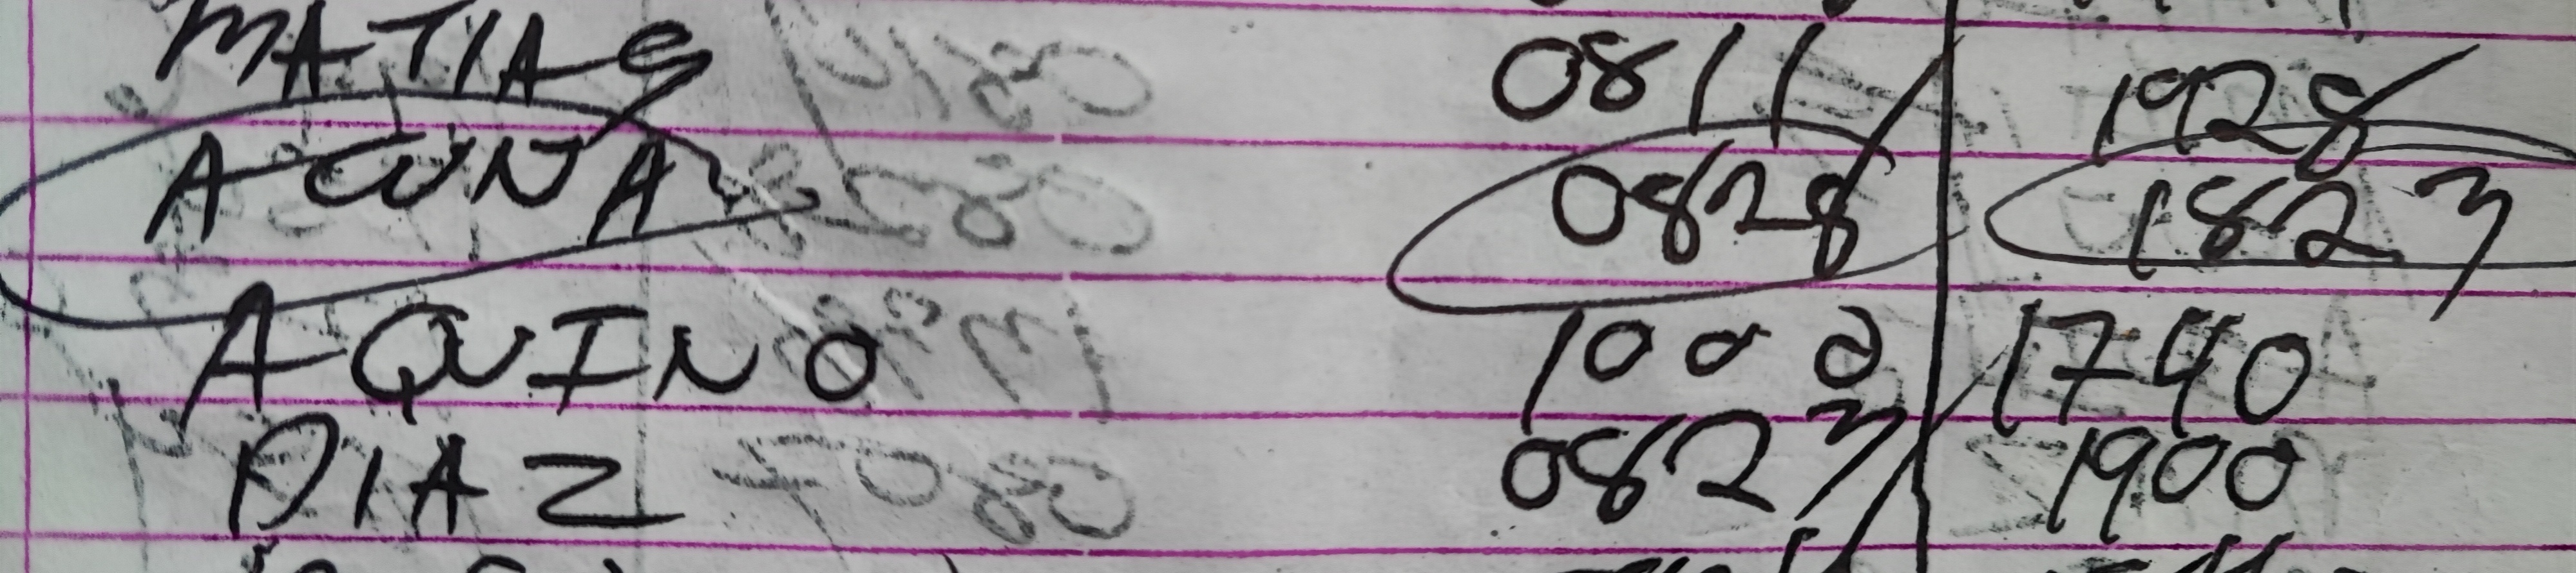 MATIAS 0811 1928
ACUNA 0828 1823
AQUINO 1000 1740
DIAZ 0823 1900